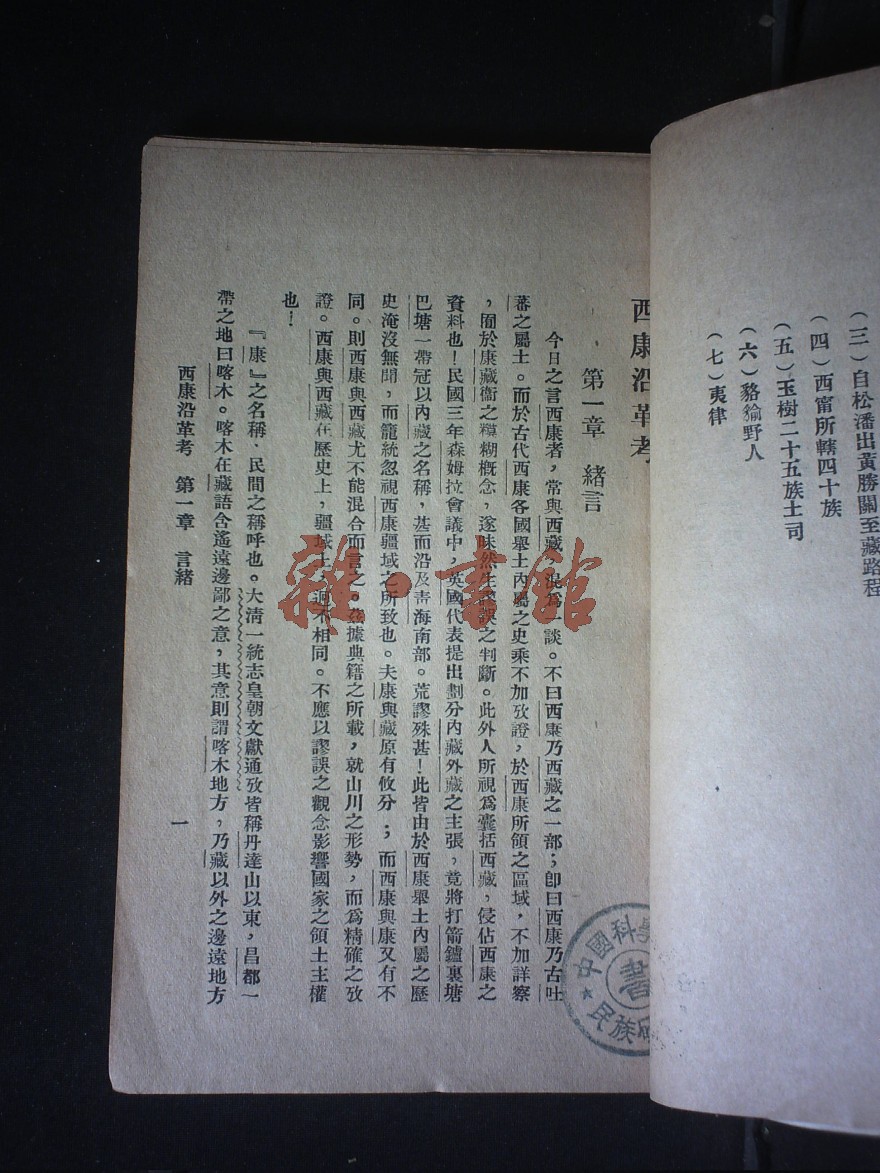 （三）自松潘出黃勝關至藏路程
（四）西甯所轄四十族
（五）玉樹二十五族土司
（六）貉㺄野人
（七）夷律
西康沿革考
第一章　緒言
今日之言西康者，常與西藏混爲一談。不曰西康乃西藏之一部；卽曰西康乃古吐
蕃之屬土。而於古代西康各國舉土內屬之史乘不加攷證，於西康所領之區域，不加詳察
，囿於康藏衞之糢糊槪念，遂昧然生謬誤之判斷。此外人所視爲囊括西藏，侵佔西康之
資料也！民國三年森姆拉會議中，英國代表提出劃分內藏外藏之主張，竟將打箭鑪裏塘
巴塘一帶冠以內藏之名稱，甚而沿及靑海南部。荒謬殊甚！此皆由於西康舉土內屬之歷
史淹沒無聞，而籠統忽視西康疆域之所致也。夫康與藏原有攸分；而西康與康又有不
同。則西康與西藏尤不能混合而言之。茲據典籍之所載，就山川之形勢，而爲精確之攷
證。西康與西藏在歷史上，疆域上，迥不相同。不應以謬誤之觀念影響國家之領土主權
也！
『康』之名稱，民間之稱呼也。大淸一統志皇朝文獻通攷皆稱丹達山以東，昌都一
帶之地曰喀木。喀木在藏語含遙遠邊鄙之意，其意則謂喀木地方，乃藏以外之邊遠地方
西康沿革考　第一章　言緒
一
中國科學
民族研
書
雜·書館